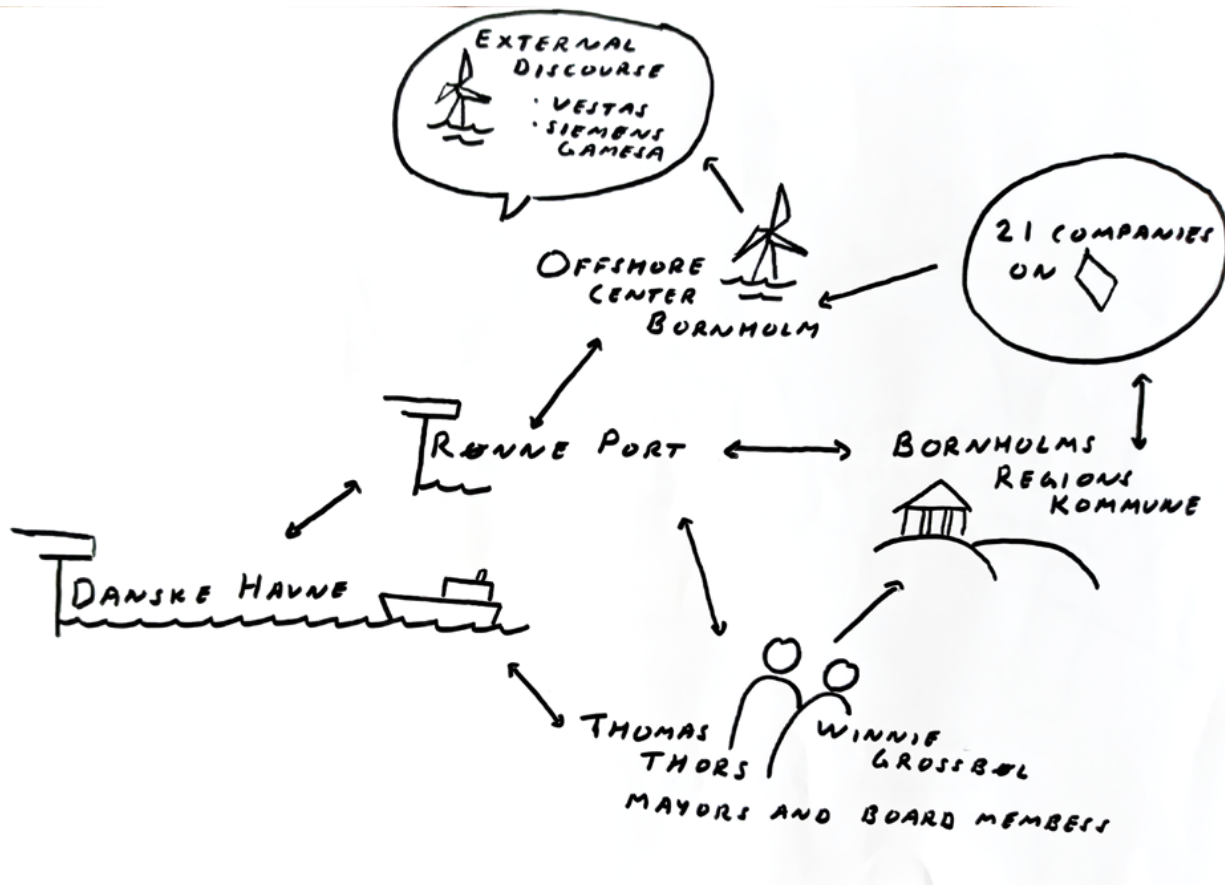 EXTERNAL
DISCOURSE
· VESTAS
· SIEMENS
GAMESA
OFFSHORE
CENTER
BORNHOLM
21 COMPANIES
ON
RØNNE PORT
BORNHOLMS
REGIONS
KOMMUNE
DANSKE HAVNE
THOMAS
THORS
WINNIE
GROSSBØL
MAYORS AND BOARD MEMBESS